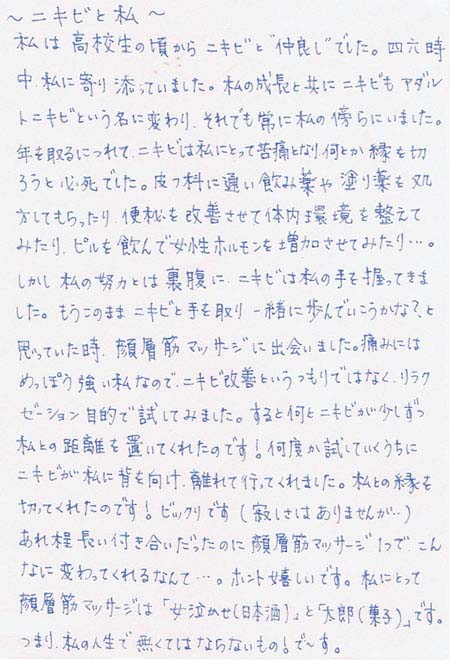 ～ニキビと私～
私は高校生の頃からニキビと"仲良し"でした。四六時
中、私に寄り添っていました。私の成長と共にニキビもアダル
トニキビという名に変わり、それでも常に私の傍らにいました。
年を取るにつれて、ニキビは私にとって苦痛となり、何とか縁を切
ろうと必死でした。皮フ科に通い飲み薬や塗り薬を処
方してもらったり、便秘を改善させて体内環境を整えて
みたり、ピルを飲んで女性ホルモンを増加させてみたり…。
しかし私の努力とは裏腹に、ニキビは私の手を握ってきま
した。もうこのままニキビと手を取り一緒に歩んでいこうかな?、と
思っていた時、顔層筋マッサージに出会いました。痛みには
めっぽう強い私なので、ニキビ改善というつもりではなく、リラク
ゼーション目的で試してみました。すると何とニキビが少しずつ
私との距離を置いてくれたのです!何度か試していくうちに
ニキビが私に背を向け、離れて行ってくれました。私との縁を
切ってくれたのです!ビックリです(寂しさはありませんが…)
あれ程長い付き合いだったのに顔層筋マッサージ1つで、こん
なに変わってくれるなんて…。ホント嬉しいです。私にとって
顔層筋マッサージは「女泣かせ(日本酒)」と「太郎(菓子)」です。
つまり、私の人生で無くてはならないもの!で～す。